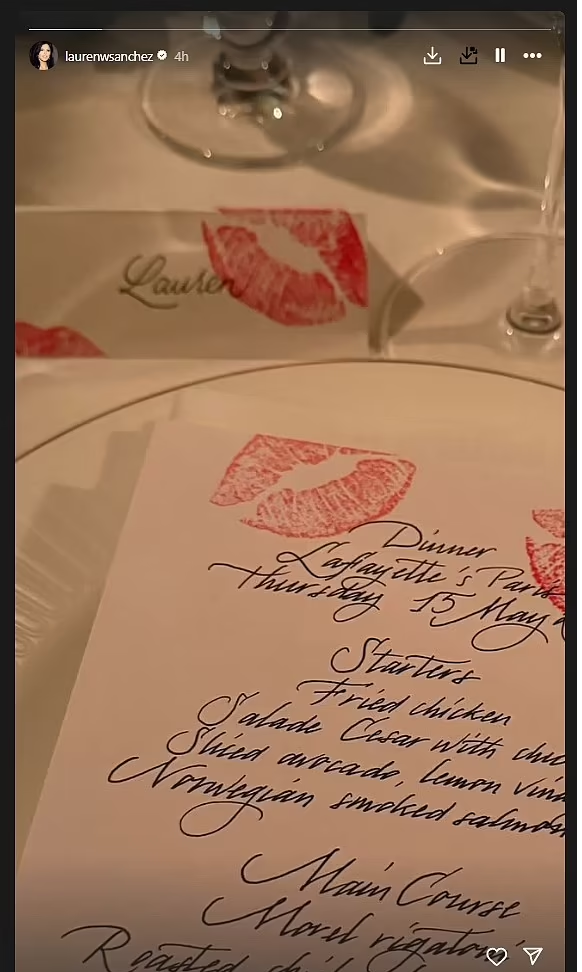 laurenwsanchez 4h
Lauren
Dinner
Lafayette's Paris
Thursday 15 May
Starters
Fried chicken
Salade Cesar with
Sliced avocado, lemon
Norwegian smoked salmon
Main Course
Morel rigatoni
Roasted